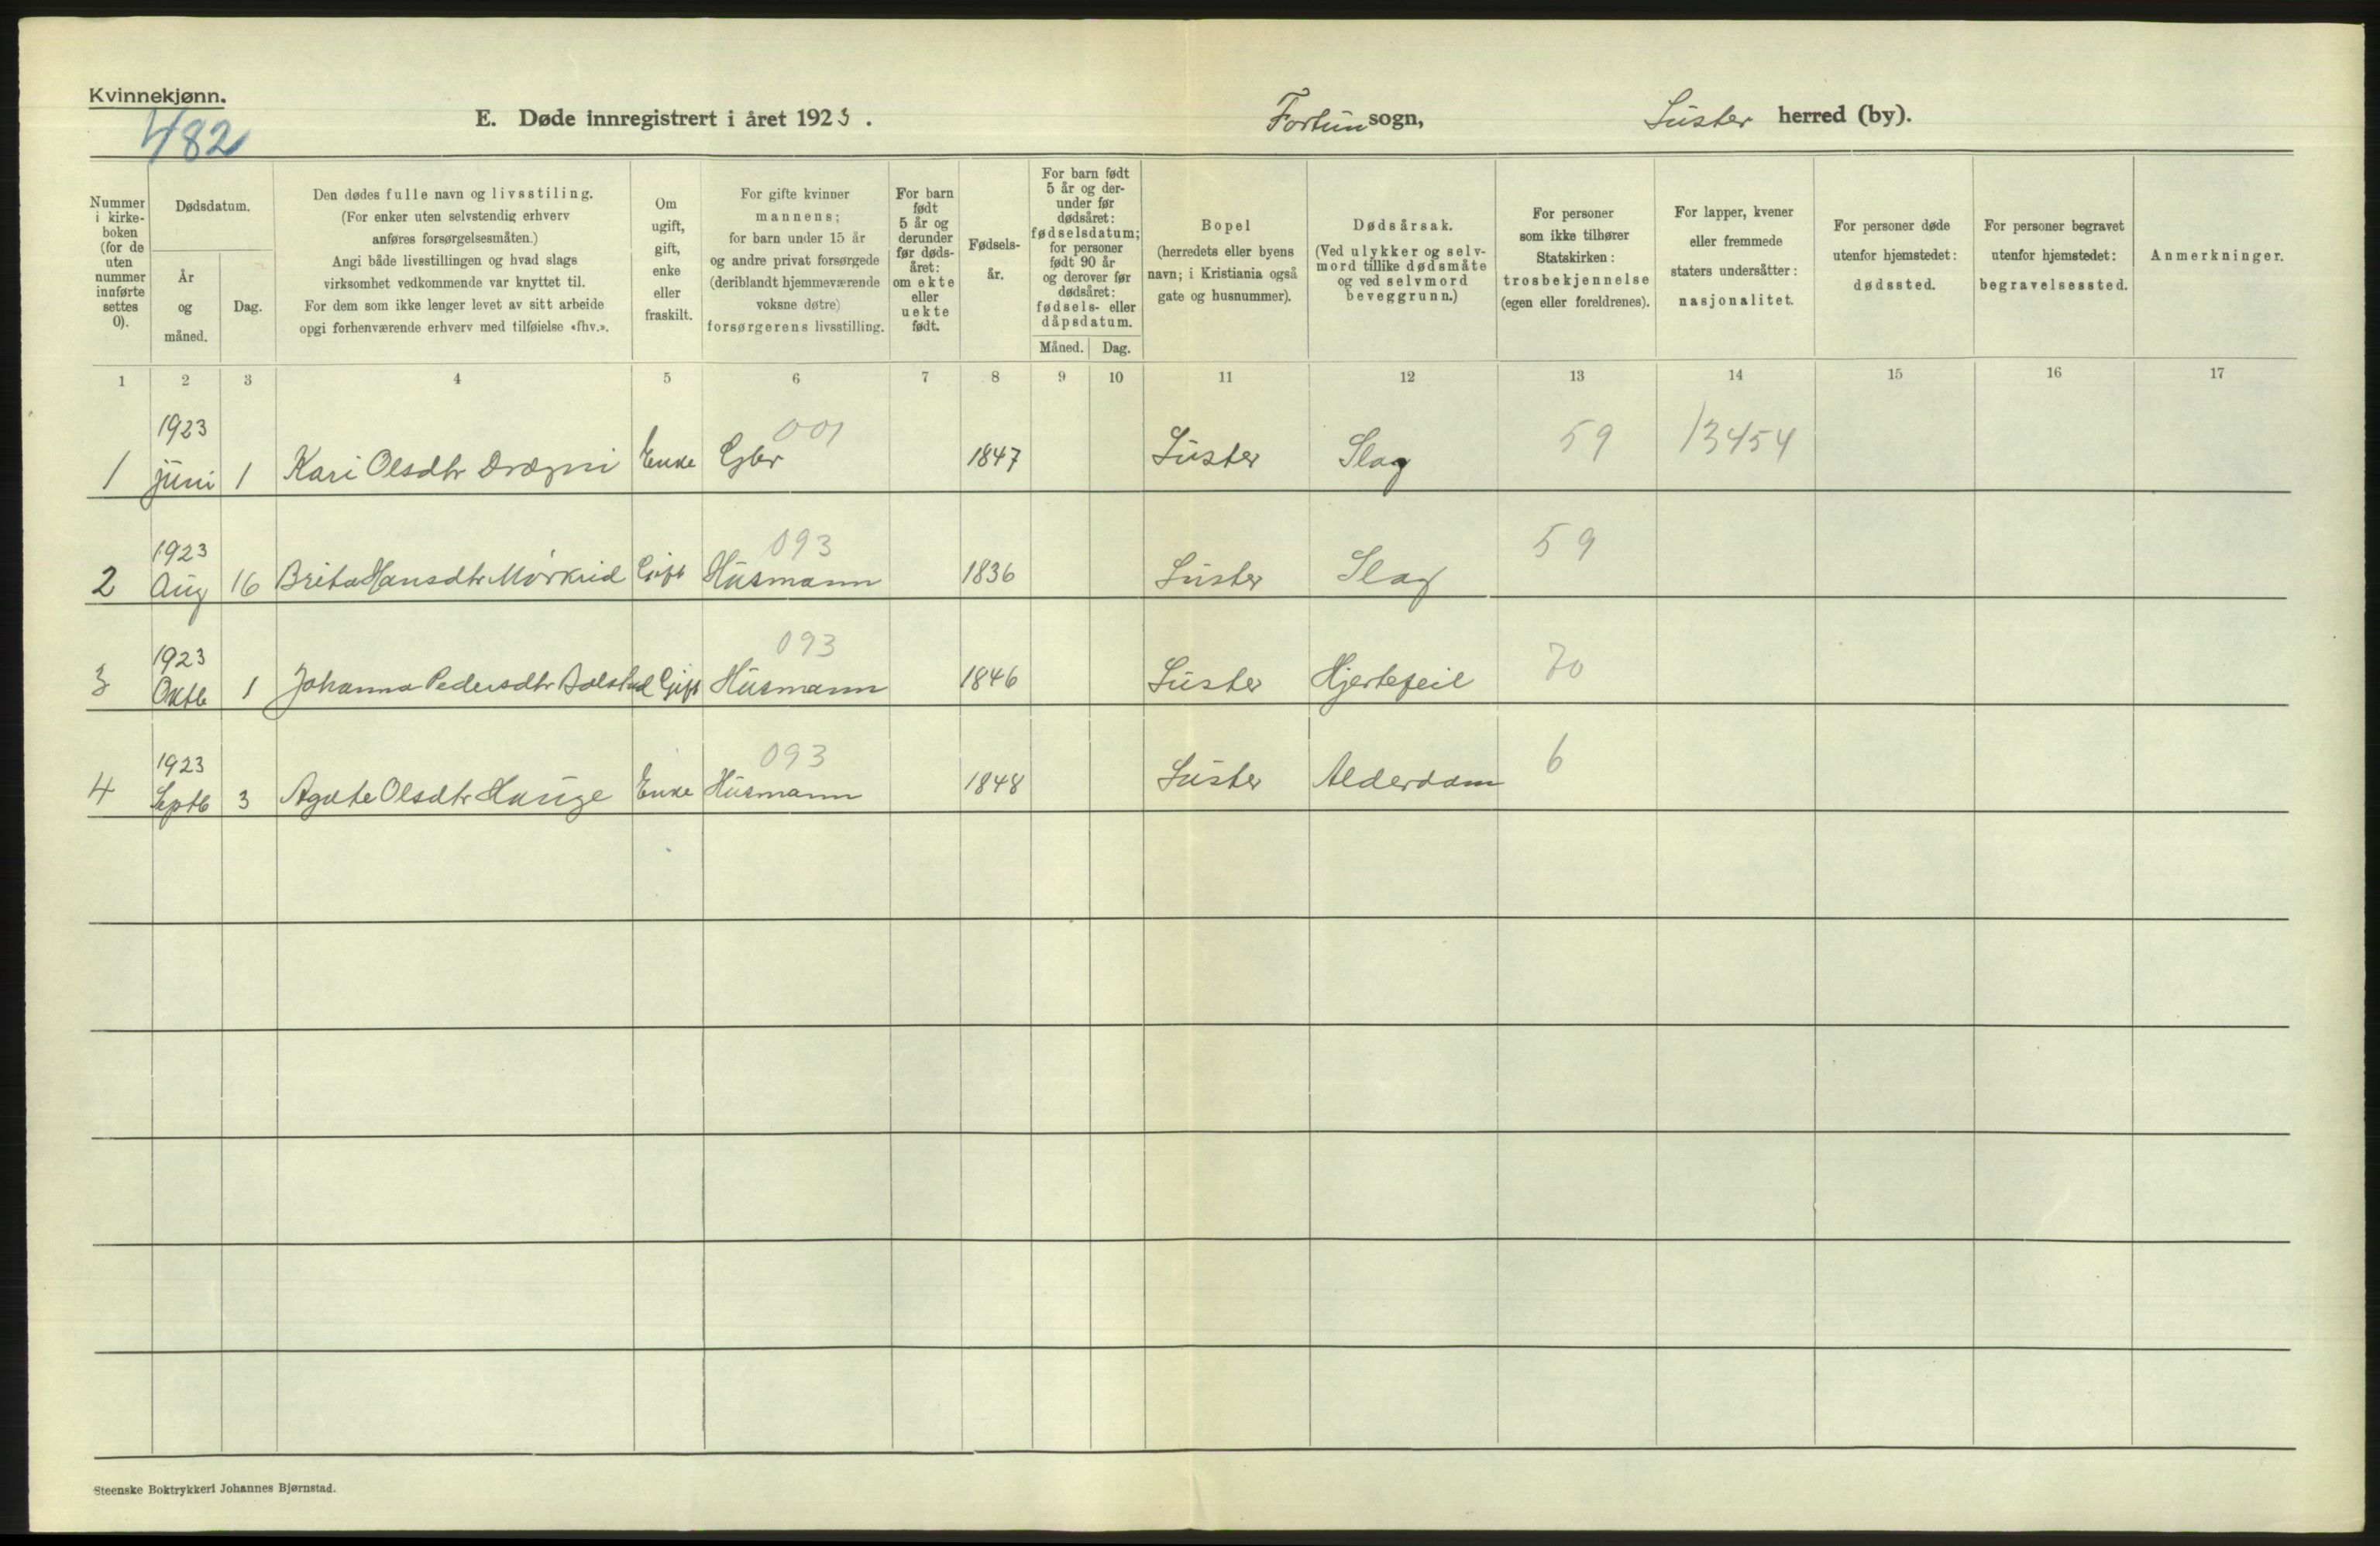 Kvinnekjønn.
482
E. Døde innregistrert i året 1923.
Fortun sogn,
Luster herred (by).
Nummer i kirke-boken (for de uten nummer innførte settes 0).
Dødsdatum.
År og måned.
Dag.
Den dødes fulle navn og livsstiling.
(For enker uten selvstendig erhverv
anføres forsørgelsesmåten.)
Angi både livsstillingen og hvad slags
virksomhet vedkommende var knyttet til.
For dem som ikke lenger levet av sitt arbeide
opgi forhenværende erhverv med tilføielse «fhv.».
Om ugift, gift, enke eller fraskilt.
For gifte kvinner
mannens;
for barn under 15 år
og andre privat forsørgede
(deriblandt hjemmeværende
voksne døtre)
forsørgerens livsstilling.
For barn født 5 år og derunder før døds-året: om ekte eller uekte født.
Fødsels-år.
For barn født 5 år og der-under før dødsåret: fødselsdatum; for personer født 90 år og derover før dødsåret: fødsels- eller dåpsdatum.
Måned. Dag.
Bopel
(herredets eller byens
navn; i Kristiania også
gate og husnummer).
Dødsårsak.
(Ved ulykker og selv-
mord tillike dødsmåte
og ved selvmord
beveggrunn.)
For personer
som ikke tilhører
Statskirken:
trosbekjennelse
(egen eller foreldrenes).
For lapper, kvener
eller fremmede
staters undersåtter:
nasjonalitet.
For personer døde
utenfor hjemstedet:
dødssted.
For personer begravet
utenfor hjemstedet:
begravelsessted.
Anmerkninger.
1 2 3 4 5 6 7 8 9 10 11 12 13 14 15 16 17
1923 001 59 13454
1 juni 1 Kari Olsdtr Drægni Enke Gbr 1847 Luster Slag
1923 093 59
2 Aug 16 Brita Hansdtr Mørkrid Gift Husmann 1836 Luster Slag
1923 093 70
3 Oktb 1 Johanna Pedersdtr Bolstad Gift Husmann 1846 Luster Hjertefeil
1923 093 6
4 Septb 3 Agate Olsdtr Hauge Enke Husmann 1848 Luster Alderdom
Steenske Boktrykkeri Johannes Bjørnstad.